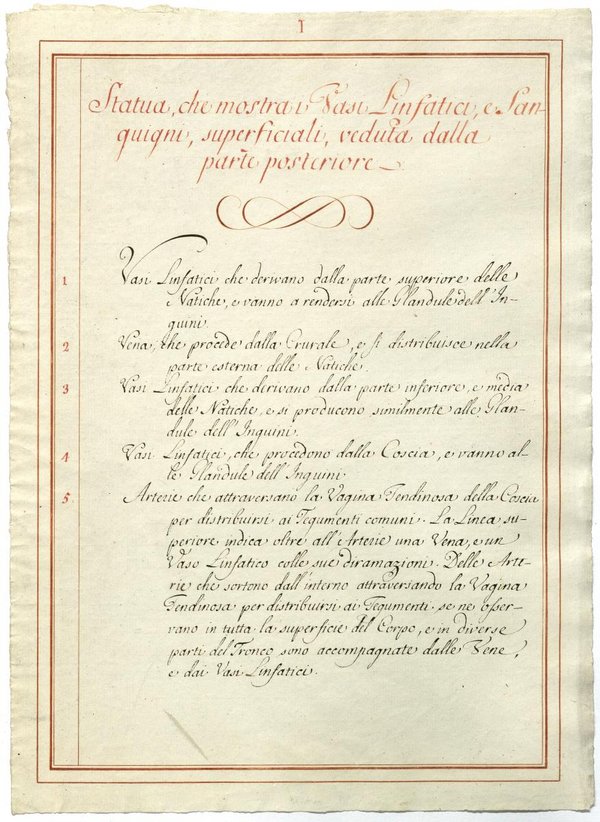 I
Statua, che mostra i Vasi Linfatici, e San-
quigni, superficiali, veduta dalla
parte posteriore
1 Vasi Linfatici che derivano dalla parte superiore delle
Natiche, e vanno a rendersi alle Glandule dell'In-
guini.
2 Vena, che procede dalla Crurale, e si distribuisce nella
parte esterna delle Natiche.
3 Vasi Linfatici che derivano dalla parte inferiore, e media
delle Natiche, e si producono similmente alle Glan-
dule dell'Inguini.
4 Vasi Linfatici, che procedono dalla Coscia, e vanno al-
le Glandule dell'Inguini.
5. Arterie che attraversano la Vagina Tendinosa della Coscia
per distribuirsi ai Tegumenti comuni. La Linea su-
periore indica oltre all'Arterie una Vena, e un
Vaso Linfatico colle sue diramazioni. Delle Arte-
rie che sortono dall'interno attraversando la Vagina
Tendinosa per distribuirsi ai Tegumenti se ne osser-
vano in tutta la superficie del Corpo, e in diverse
parti del Tronco sono accompagnate dalle Vene,
e dai Vasi Linfatici.